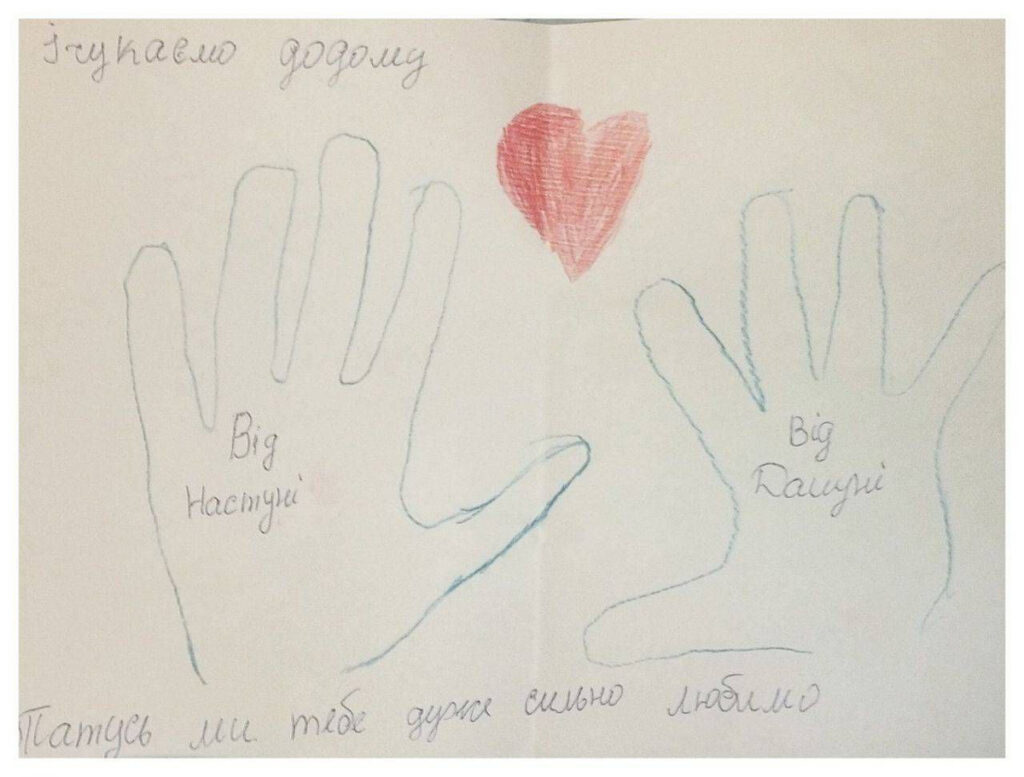 і чукаємо додому
Від
Настуні
Від
Дашуні
Татусь ми тебе дуже сильно любимо